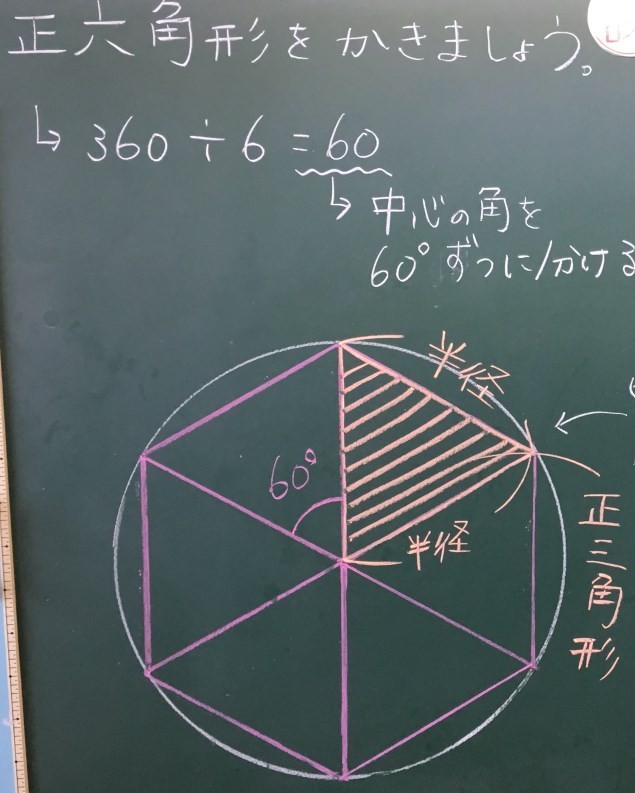 正六角形をかきましょう。
↳ 360÷6=60
↳ 中心の角を
60°ずつに分ける
半径
60°
半径
正三角形